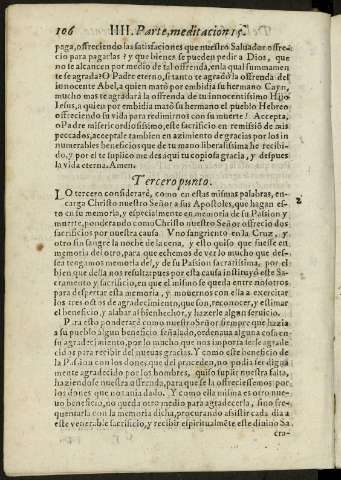 106 IIII. Parte, meditacion 15.
paga, ofreciendo las satisfaciones que nuestro Saluador ofre-
cio para pagarlas? y que bienes se pueden pedir a Dios, que
no se alcancen por medio de tal ofrenda, en la qual summamen
te se agrada? O Padre eterno, si tanto te agradó la ofrenda del
innocente Abel, a quien mató por embidia su hermano Cayn,
mucho mas te agradará la ofrenda de tu innocentissimo Hijo
Iesus, a quien por embidia mató su hermano el pueblo Hebreo
ofreciendo su vida para redimirnos con su muerte! Accepta,
o Padre misericordiosissimo, este sacrificio en remissió de mis
peccados, acceptale tambien en azimiento de gracias por los in
numerables beneficios que de tu mano liberalissima he recibi-
do, y por el te suplico me des aqui tu copiosa gracia, y despues
la vida eterna. Amen.
Tercero punto.
LO tercero consideraré, como en estas mismas palabras, en-
carga Christo nuestro Señor a sus Apostoles, que hagan es-
to en su memoria, y especialmente en memoria de su Passion y
muerte, ponderando como Christo nuestro Señor ofrecio dos
sacrificios por nuestra causa. Vno sangriento en la Cruz, y
otro sin sangre la noche de la cena, y esto quiso que fuesse en
memoria del otro, para que echemos de ver lo mucho que des-
sea tengamos memoria del, y de su Passion sacratissima, por el
bien que della nos resulta: pues por esta causa instituyó este Sa-
cramento y sacrificio, en que el mismo se queda entre nosotros
para despertar esta memoria, y mouernos con ella a exercitar
los tres actos de agradecimiento, que son, reconocer, y estimar
el beneficio, y alabar al biẽhechor, y hazerle algun seruicio.
Para esto ponderaré como nuestro Señor siempre que hazia
a su pueblo algun beneficio señalado, ordenaua alguna cosa en
su agradecimiento, por lo mucho que nos importa serle agrade
cidos para recibir del nueuas gracias. Y como este beneficio de
la Passion con los dones que del proceden, no podia ser digna
mente agradecido por los hombres, quiso suplir nuestra falta,
haziendose nuestra ofrenda, para que se la ofreciessemos por
los dones que nos auia dado. Y como ella misma es otro nue-
uo beneficio, no queda otro medio para agradecerla, sino fre-
quentarla con la memoria dicha, procurando assistir cada dia a
este venerable sacrificio, y recibir espiritualmẽte este diuino Sa
cra-
2